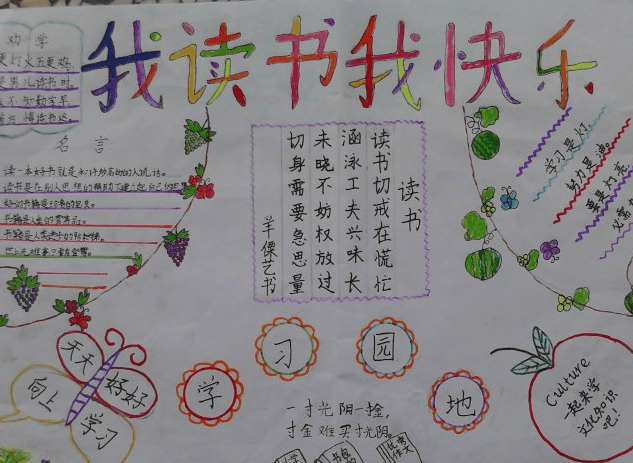 我读书我快乐
劝学
更灯火五更鸡.
是男儿读书时.
不知勤学早
悔读书迟.
名言
读一本好书就是和许多高尚的人说话。
读书是在别人思想的帮助下建立起自己的思
书籍是人类的营养品。
书籍是人类进步的阶梯。
世上无难事只要肯登攀。
读书
读书切戒在慌忙
涵泳工夫兴味长
未晓不妨权放过
切身需要急思量
羊傈艺书
学习是灯,
努力是油。
要是灯亮
天天
好好
向上
学习
学
习
园
地
一寸光阴一寸金,
寸金难买寸光阴。
优秀
作文
Culture
一起来学
文化知识
吧!